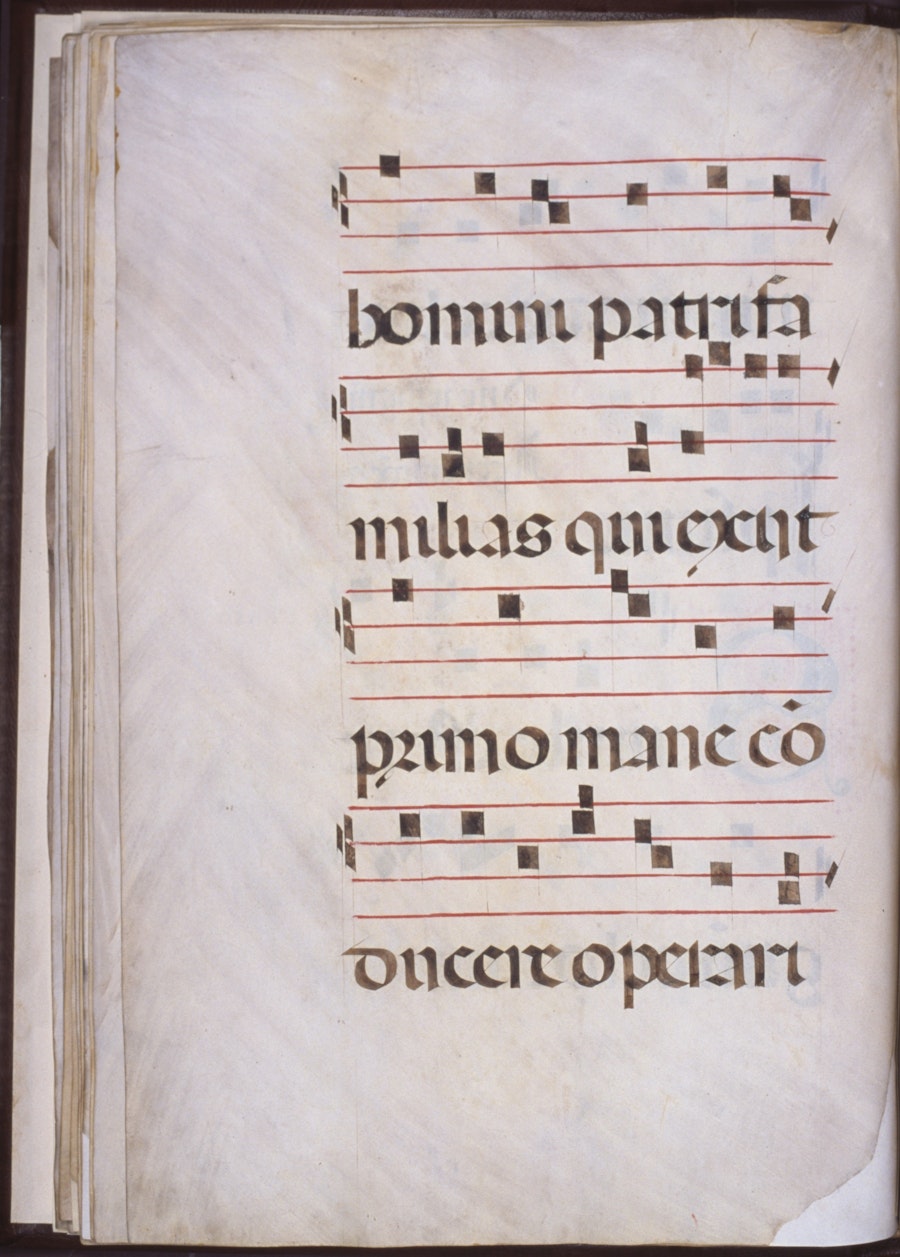 homini patrifa
milias qui exiit
primo mane cō
ducere operari